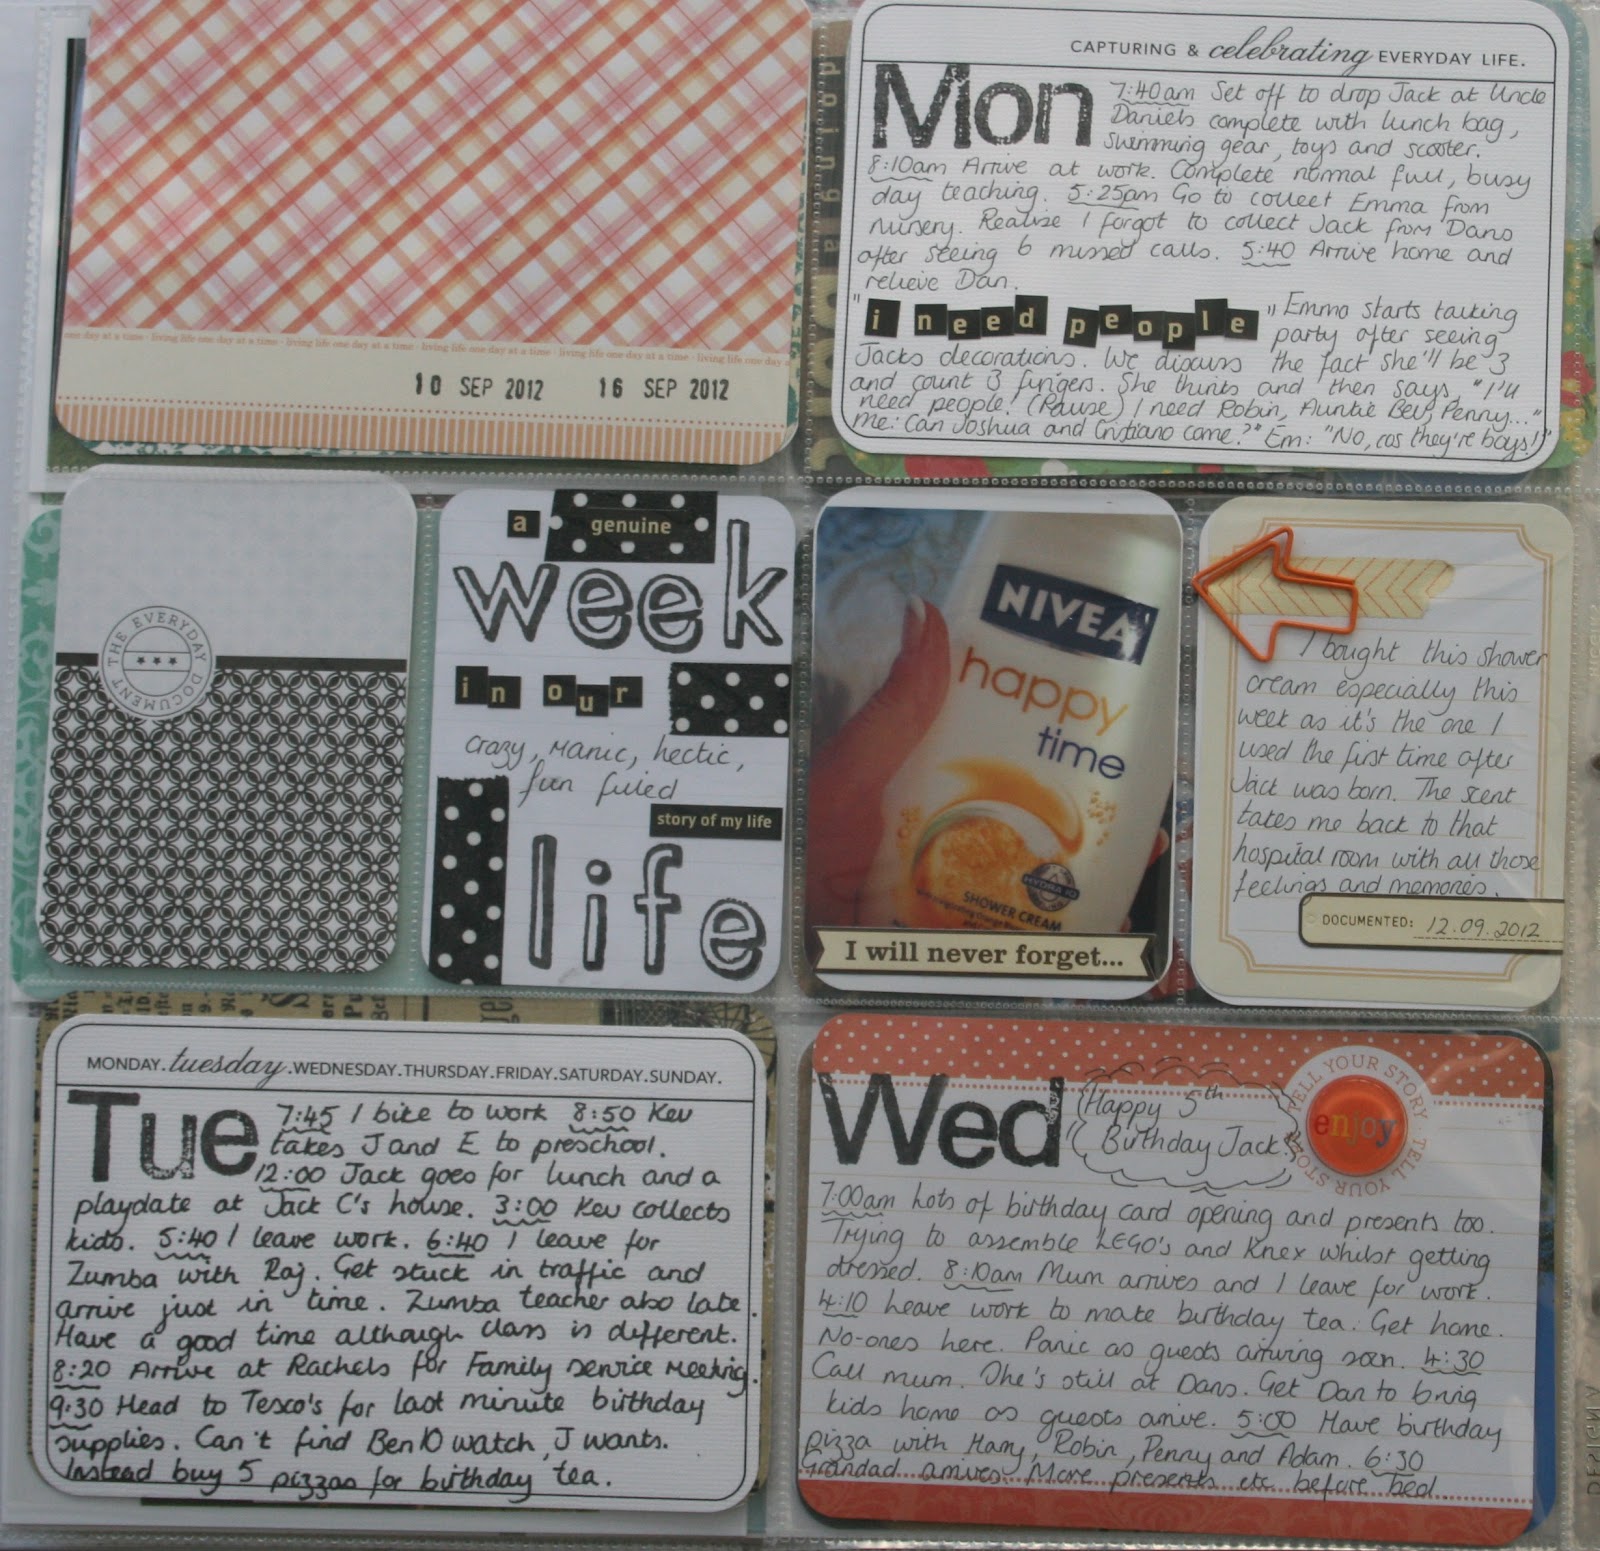 one day at a time · living life one day at a time · living life one day at a time · living life one day at a time · living life one day at a time · living life one day
10 SEP 2012 16 SEP 2012
CAPTURING & celebrating EVERYDAY LIFE.
Mon 7:40am Set off to drop Jack at Uncle
Daniels complete with lunch bag,
swimming gear, toys and scooter.
8:10am Arrive at work. Complete normal full, busy
day teaching. 5:25pm Go to collect Emma from
nursery. Realise I forgot to collect Jack from Dans
after seeing 6 missed calls. 5:40 Arrive home and
relieve Dan.
"i need people" Emma starts talking
party after seeing
Jacks decorations. We discuss the fact she'll be 3
and count 3 fingers. She thinks and then says, "I'll
need people! (Pause) I need Robin, Auntie Bev, Penny..."
Me: Can Joshua and Cristiano come?" Em: "No, cos they're boys!?"
THE EVERYDAY
DOCUMENT
a genuine
week
in our
crazy, manic, hectic,
fun filled
story of my life
life
NIVEA
happy
time
HYDRA IQ
SHOWER CREAM
I will never forget...
I bought this shower
cream especially this
week as it's the one I
used the first time after
Jack was born. The scent
takes me back to that
hospital room with all those
feelings and memories.
DOCUMENTED: 12.09.2012
MONDAY.tuesday.WEDNESDAY.THURSDAY.FRIDAY.SATURDAY.SUNDAY.
Tue 7:45 I bike to work 8:50 Kev
takes J and E to preschool.
12:00 Jack goes for lunch and a
playdate at Jack C's house. 3:00 Kev collects
kids. 5:40 I leave work. 6:40 I leave for
Zumba with Raj. Get stuck in traffic and
arrive just in time. Zumba teacher also late.
Have a good time although class is different.
8:20 Arrive at Rachels for Family service meeting.
9:30 Head to Tesco's for last minute birthday
supplies. Can't find Ben 10 watch J wants.
Instead buy 5 pizzas for birthday tea.
Wed Happy 5th
Birthday Jack!
TELL YOUR STORY · TELL YOUR STORY
enjoy
7:00am Lots of birthday card opening and presents too.
Trying to assemble LEGO's and Knex whilst getting
dressed. 8:10am Mum arrives and I leave for work.
4:10 Leave work to make birthday tea. Get home.
No-ones here. Panic as guests arriving soon. 4:30
Call mum. She's still at Dans. Get Dan to bring
kids home as guests arrive. 5:00 Have birthday
pizza with Harry, Robin, Penny and Adam. 6:30
Grandad arrives. More presents etc before bed.